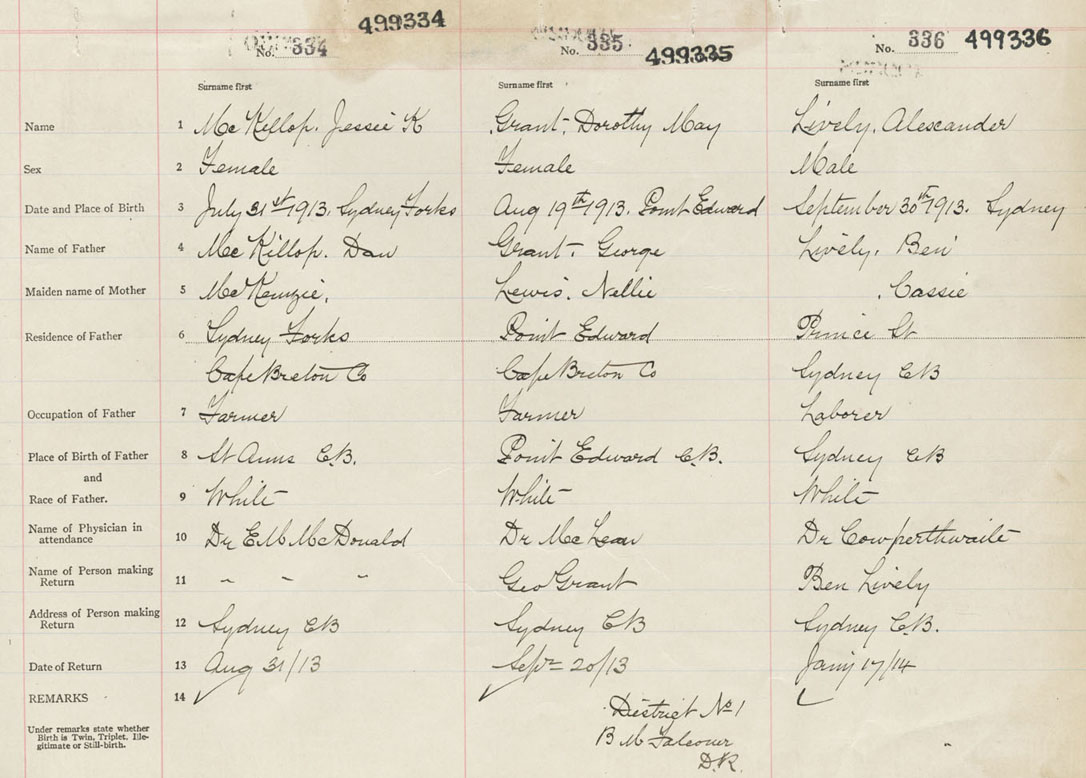 499334
No. 334
No. 335 499335
No. 336 499336
Surname first Surname first Surname first
Name 1 McKillop. Jessie K Grant, Dorothy May Lively, Alexander
Sex 2 Female Female Male
Date and Place of Birth 3 July 31st 1913. Sydney Forks Aug 19th 1913. Point Edward September 30th 1913. Sydney
Name of Father 4 McKillop. Dan Grant, George Lively, Ben
Maiden name of Mother 5 McKenzie, Lewis. Nellie , Cassie
Residence of Father 6 Sydney Forks Point Edward Prince St
Cape Breton Co Cape Breton Co Sydney CB
Occupation of Father 7 Farmer Farmer Laborer
Place of Birth of Father 8 St Anns C.B. Point Edward C.B. Sydney CB
and
Race of Father. 9 White White White
Name of Physician in
attendance 10 Dr E M McDonald Dr McLean Dr Cowperthwaite
Name of Person making
Return 11 " " " Geo Grant Ben Lively
Address of Person making
Return 12 Sydney CB Sydney CB Sydney C.B.
Date of Return 13 Aug 31/13 Sept 20/13 Jany 17/14
REMARKS 14
Under remarks state whether
Birth is Twin, Triplet. Ille-
gitimate or Still-birth.
District No 1
B M Falconer
D.R.